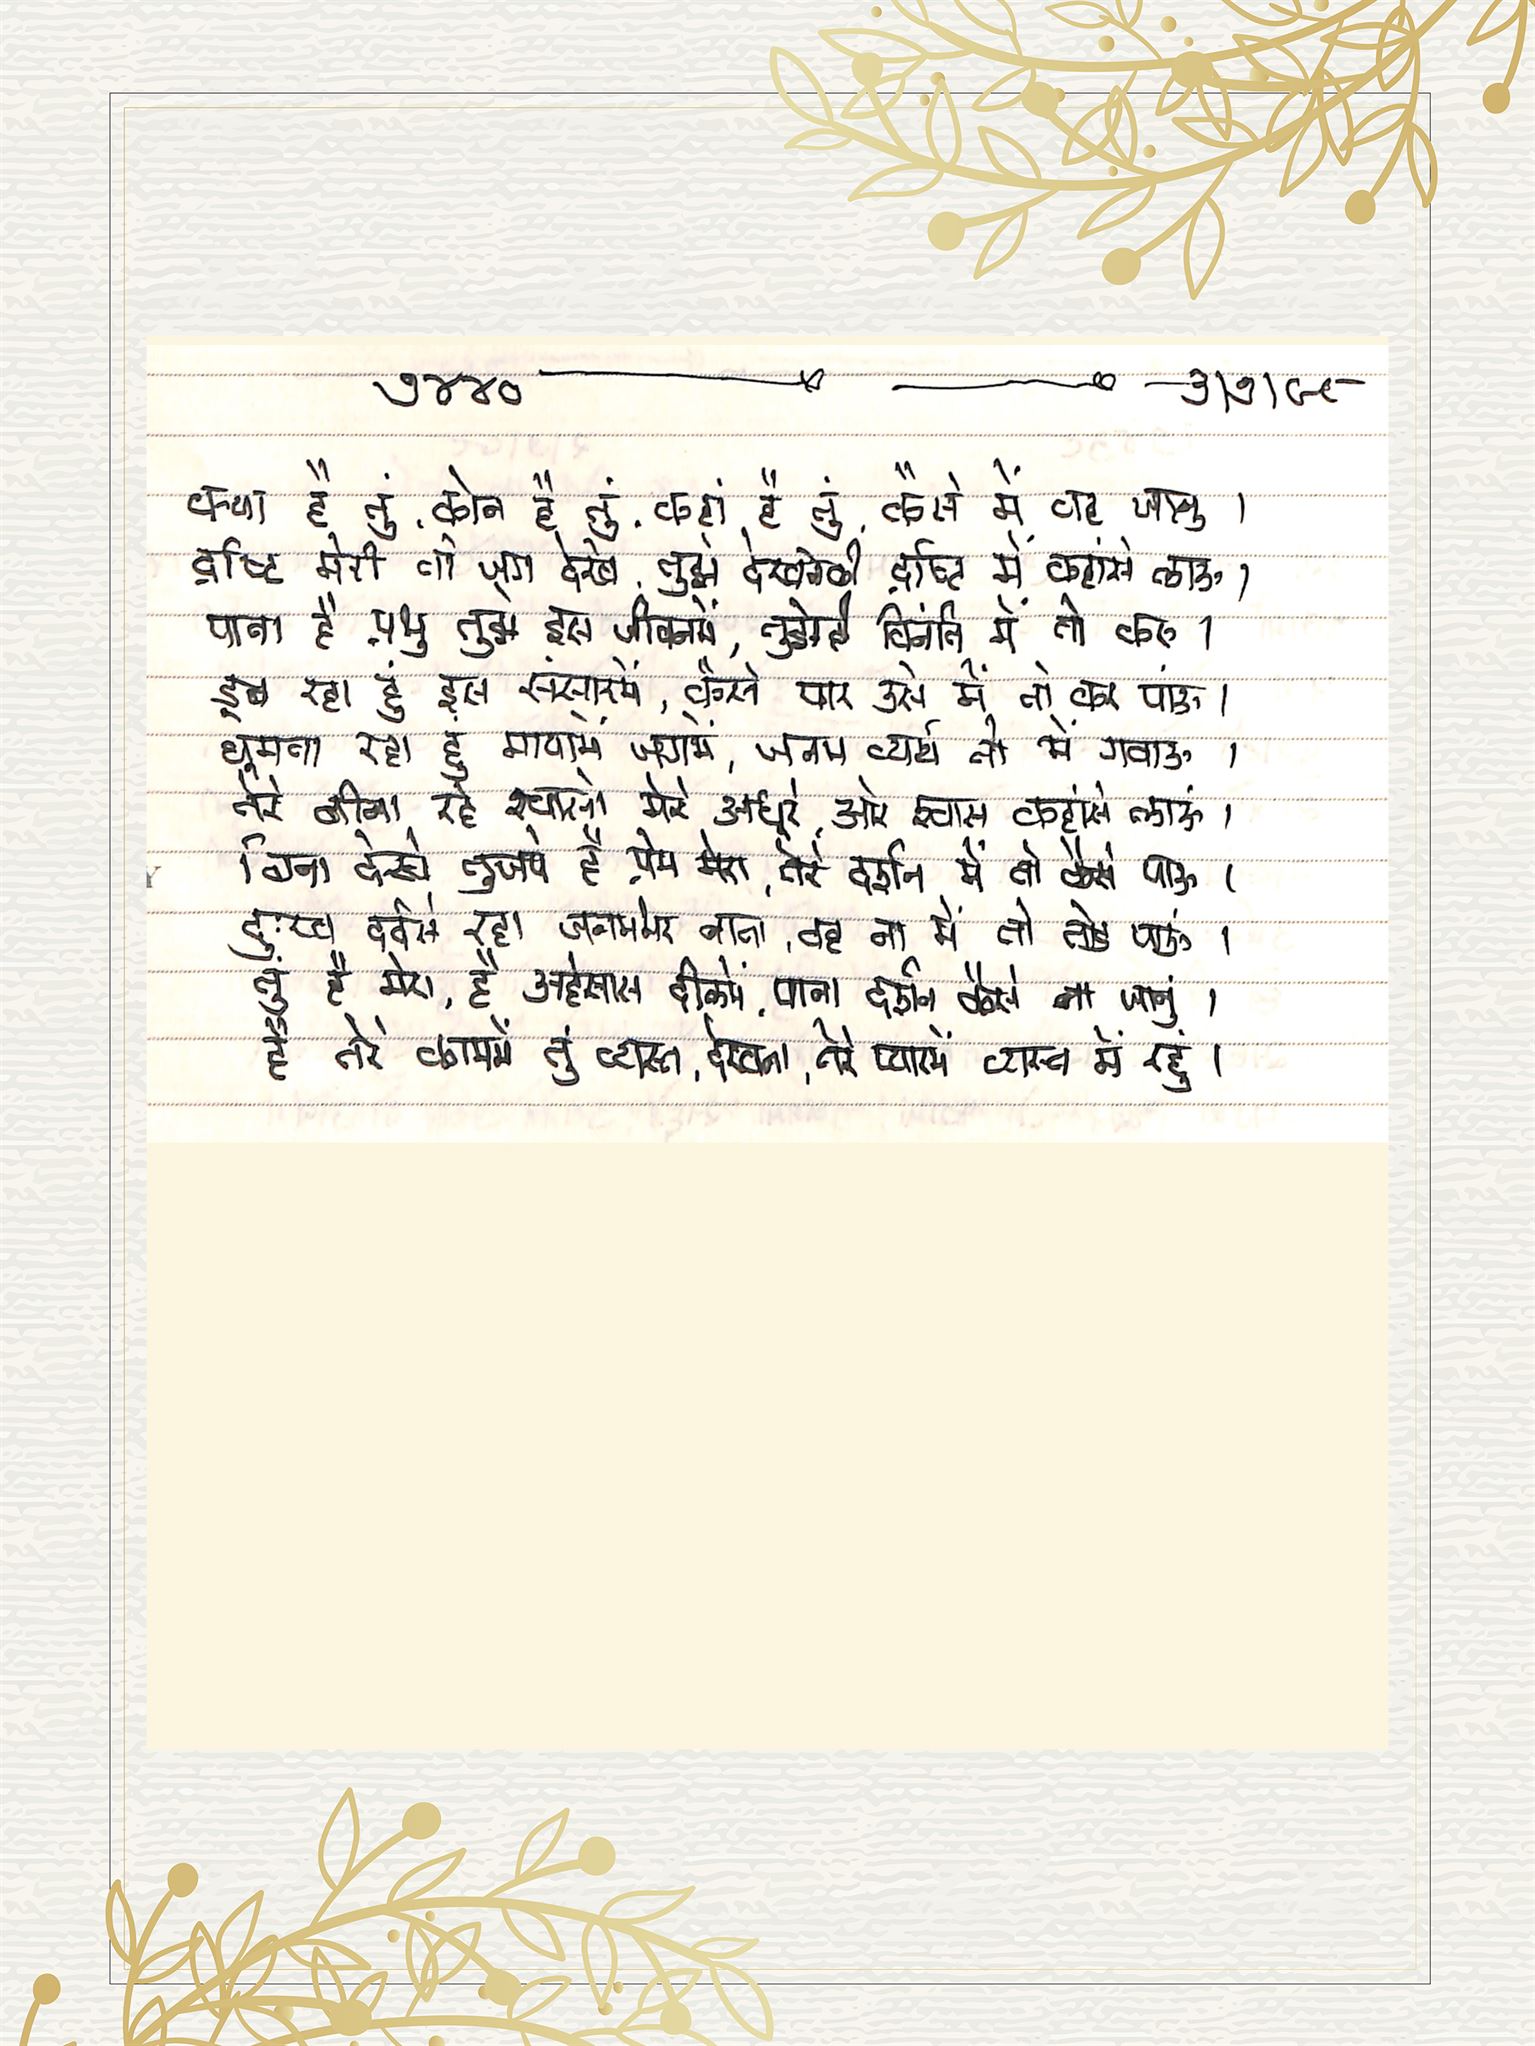 ૭૪૪૦ ૩|૭|૯૮
क्या है तुं, कोन है तुं, कहां है तुं, कैसे में यह जानु ।
द्रष्टि मेरी तो जग देखे, तुझे देखनेकी द्रष्टि में कहांसे लाऊं ।
पाना है प्रभु तुझे इस जीवनमें, तुझेही विनंति में तो करु ।
डूब रहा हुं इस संसारमें, कैसे पार उसे में तो कर पांऊ ।
धूमता रहा हुं मायामें जगमें, जनम व्यर्थ तो में गवाऊ ।
तेरे बीना रहे श्वासो मेरे अधूरे, ओर श्वास कहांसे लाऊं ।
बिना देखे तुजपे है प्रेम मेरा, तेरे दर्शन में तो कैसे पाऊ ।
दुःख दर्दसे रहा जनमभर नाता, वह ना में तो तोड पाऊं ।
तुं है मेरा, है अहेसास दीलमें, पाना दर्शन कैसे ना जानुं ।
है तेरे काममें तुं व्यस्त, देखना, तेरे प्यारमें व्यस्त में रहुं ।